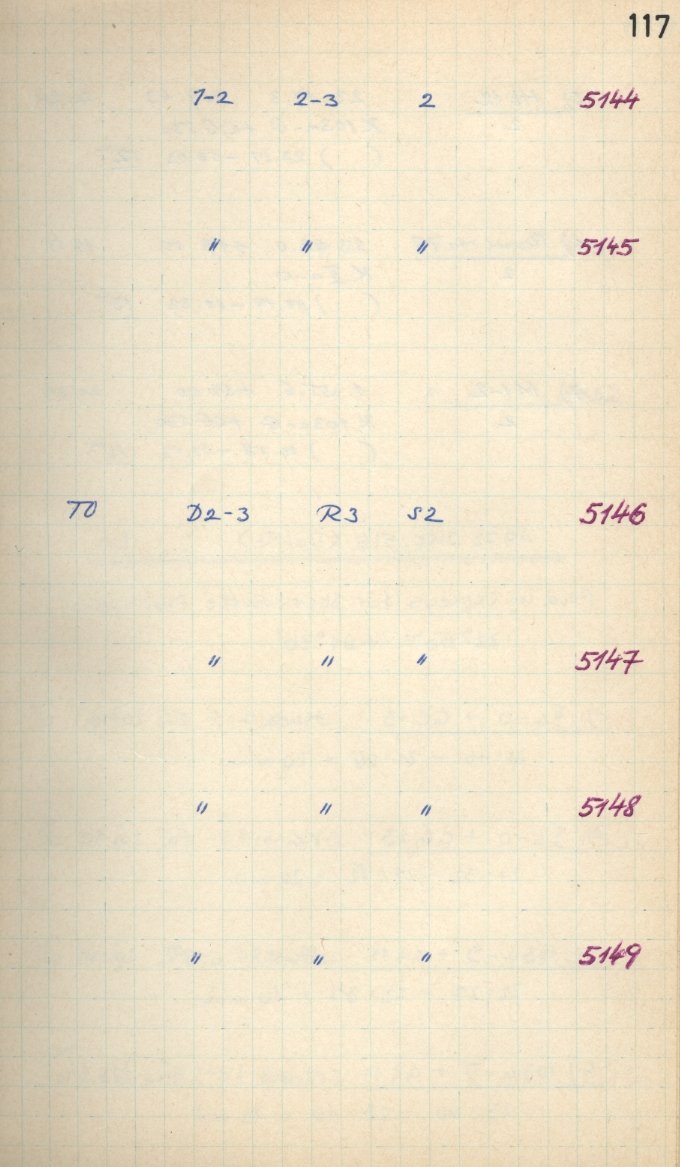 117
1-2 2-3 2 5144
" " " 5145
TO D2-3 R3 S2 5146
" " " 5147
" " " 5148
" " " 5149